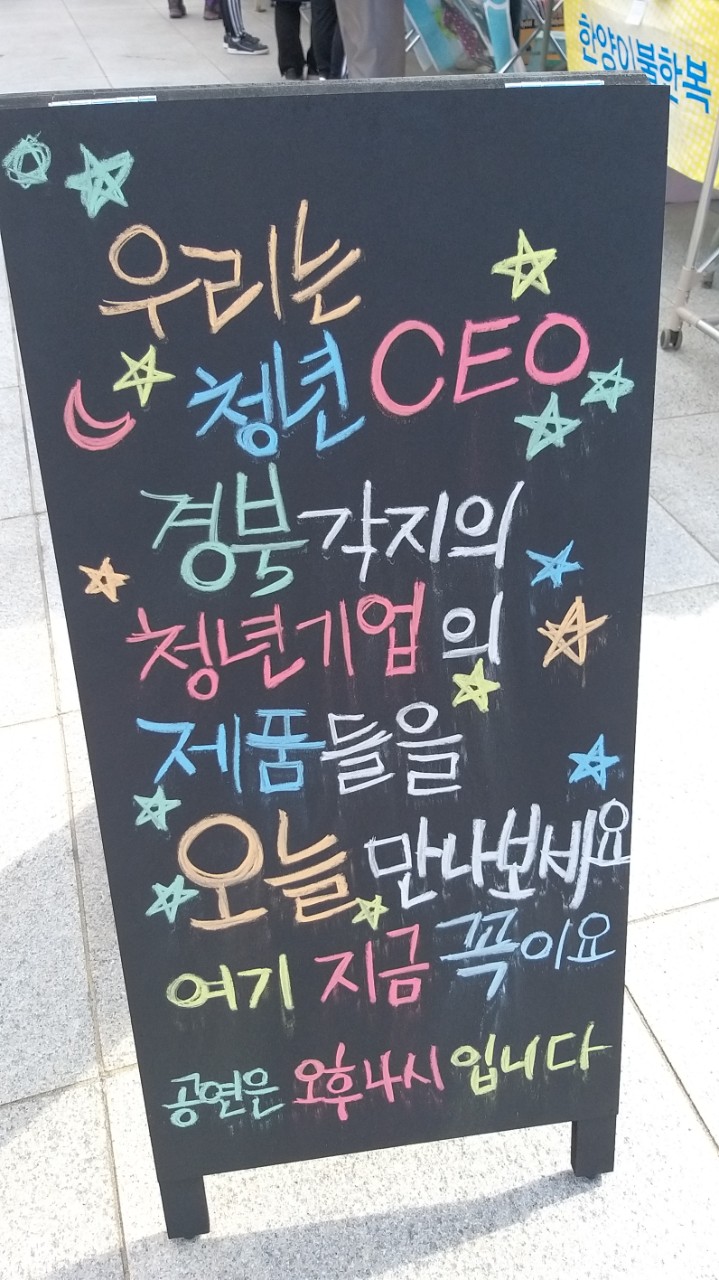 한양이불한복
우리는
청년 CEO
경북각지의
청년기업의
제품들을
오늘 만나보세요
여기 지금 꼭이요
공연은 오후4시입니다